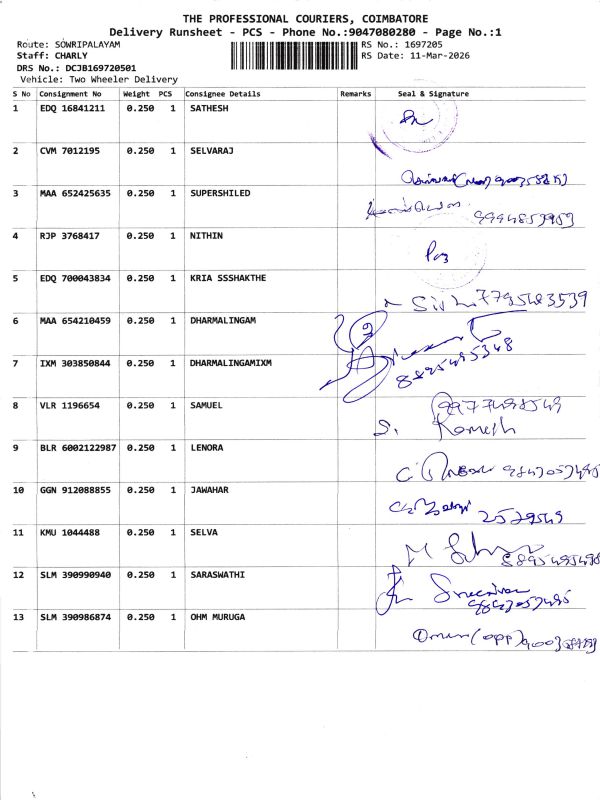 THE PROFESSIONAL COURIERS, COIMBATORE
Delivery Runsheet - PCS - Phone No.:9047080280 - Page No.:1
Route: SOWRIPALAYAM RS No.: 1697205
Staff: CHARLY RS Date: 11-Mar-2026
DRS No.: DCJB169720501
Vehicle: Two Wheeler Delivery
S No Consignment No Weight PCS Consignee Details Remarks Seal & Signature
1 EDQ 16841211 0.250 1 SATHESH
2 CVM 7012195 0.250 1 SELVARAJ
3 MAA 652425635 0.250 1 SUPERSHILED
4 RJP 3768417 0.250 1 NITHIN
5 EDQ 700043834 0.250 1 KRIA SSSHAKTHE
7795483539
6 MAA 654210459 0.250 1 DHARMALINGAM
8895495348
7 IXM 303850844 0.250 1 DHARMALINGAMIXM
8 VLR 1196654 0.250 1 SAMUEL
9977498549
S. Ramesh
9 BLR 6002122987 0.250 1 LENORA
10 GGN 912088855 0.250 1 JAWAHAR
2529549
11 KMU 1044488 0.250 1 SELVA
12 SLM 390990940 0.250 1 SARASWATHI
13 SLM 390986874 0.250 1 OHM MURUGA